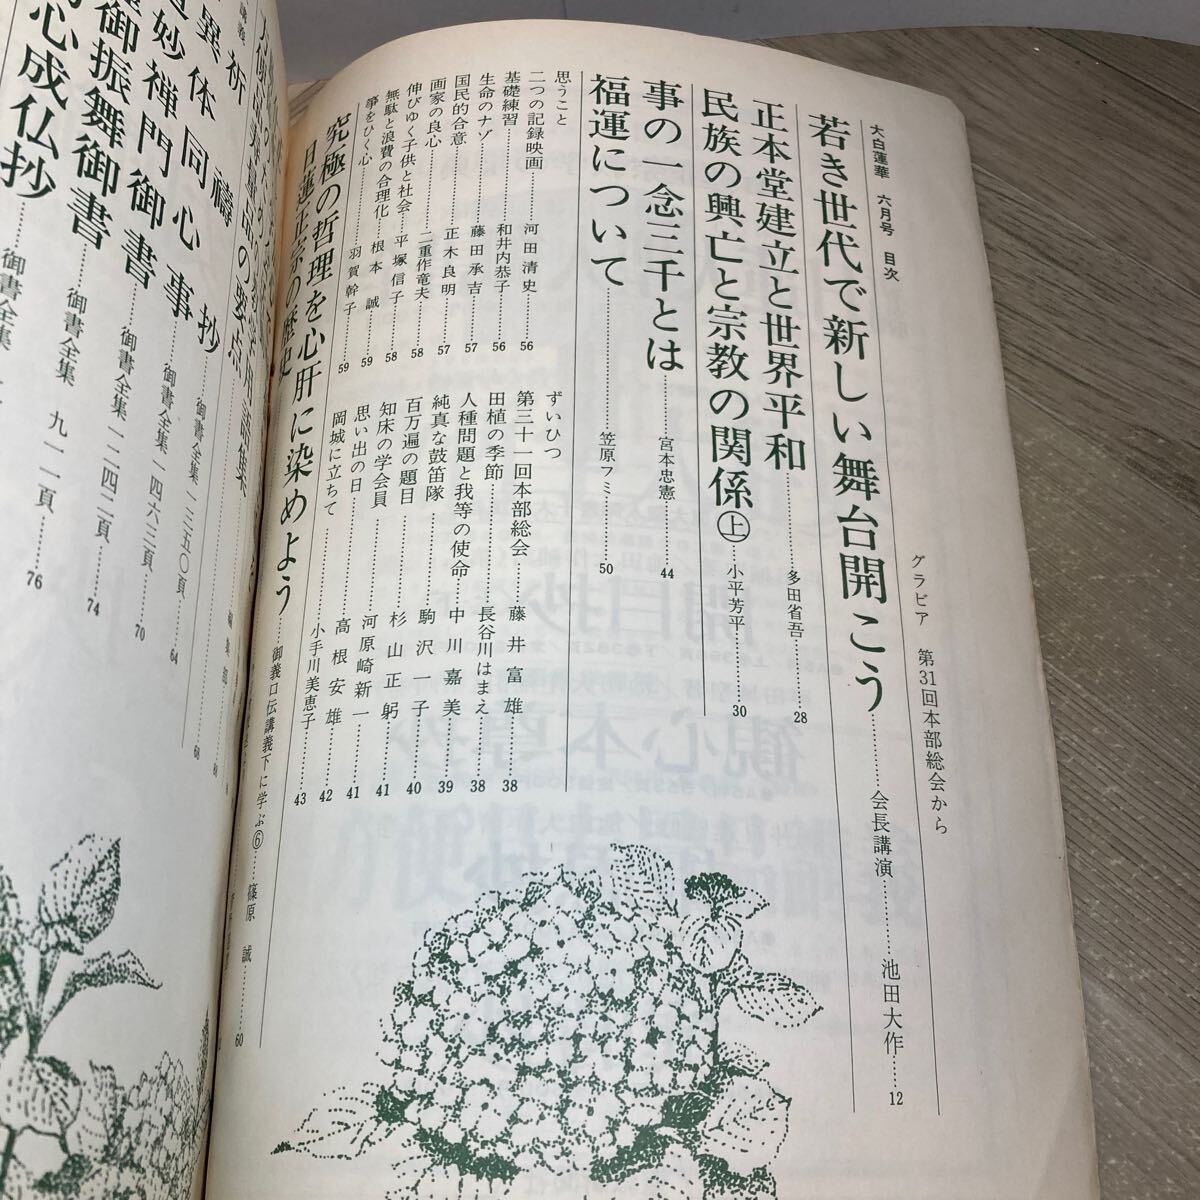 大白蓮華 六月号 目次
グラビア 第31回本部総会から
若き世代で新しい舞台開こう……会長講演……池田大作…12
正本堂建立と世界平和……多田省吾…28
民族の興亡と宗教の関係㊤……小平芳平…30
事の一念三千とは……宮本忠憲…44
福運について……笠原フミ…50
思うこと
二つの記録映画……河田清史…56
基礎練習……和井内恭子…56
生命のナゾ……藤田承吉…57
国民的合意……正木良明…57
画家の良心……二重作竜夫…58
伸びゆく子供と社会……平塚信子…58
無駄と浪費の合理化……根本誠…59
箏をひく心……羽賀幹子…59
ずいひつ
第三十一回本部総会……藤井富雄…38
田植の季節……長谷川はまえ…38
人種問題と我等の使命……中川嘉美…39
純真な鼓笛隊……駒沢一子…40
百万遍の題目……杉山正躬…41
知床の学会員……河原崎新一…41
思い出の日……高根安雄…42
岡城に立ちて……小手川美恵子…43
究極の哲理を心肝に染めよう……御義口伝講義下に学ぶ⑥……篠原誠…60
日蓮正宗の歴史
用語集
寿量品の要点
講義
祈禱抄……御書全集一三五〇頁…64
異体同心事……御書全集一四六三頁…70
妙禅門御書……御書全集一二四二頁…74
御振舞御書……御書全集九一一頁…76
心成仏抄……御書全集